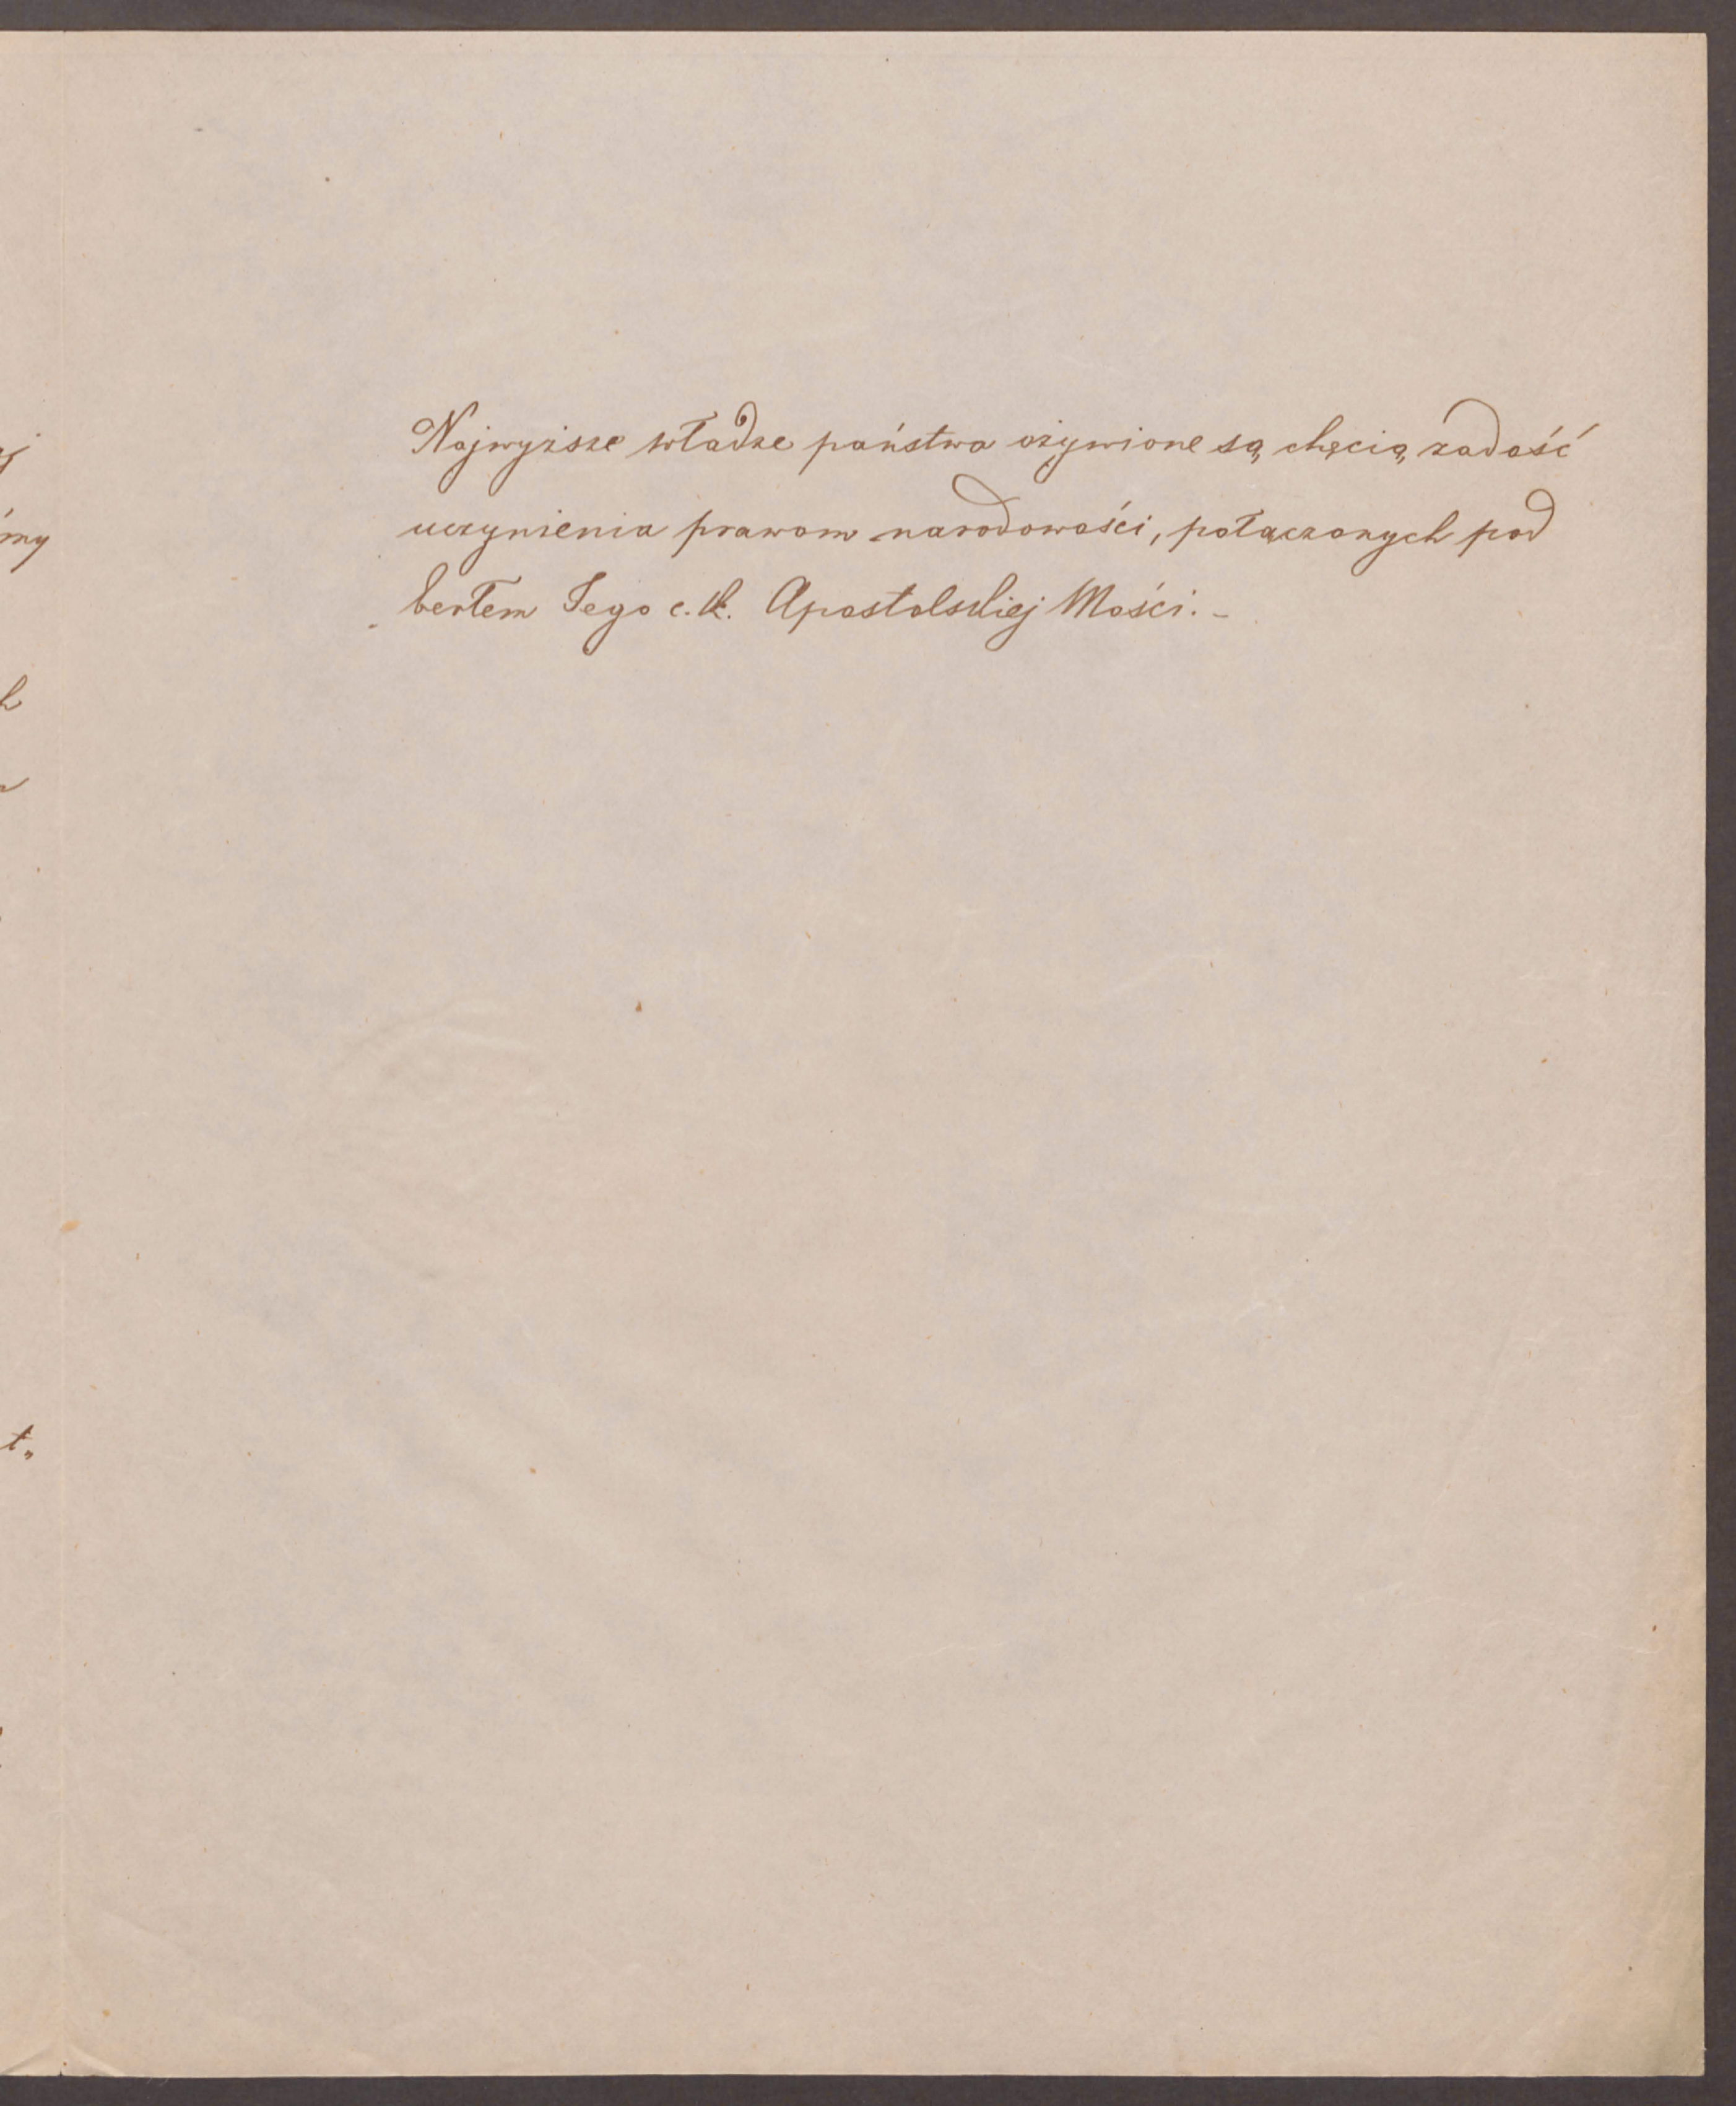 Najwyższe władze państwa ożywione są chęcią zadość
uczynienia prawom narodowości, połączonych pod
berłem Jego c. k. Apostolskiej Mości. –